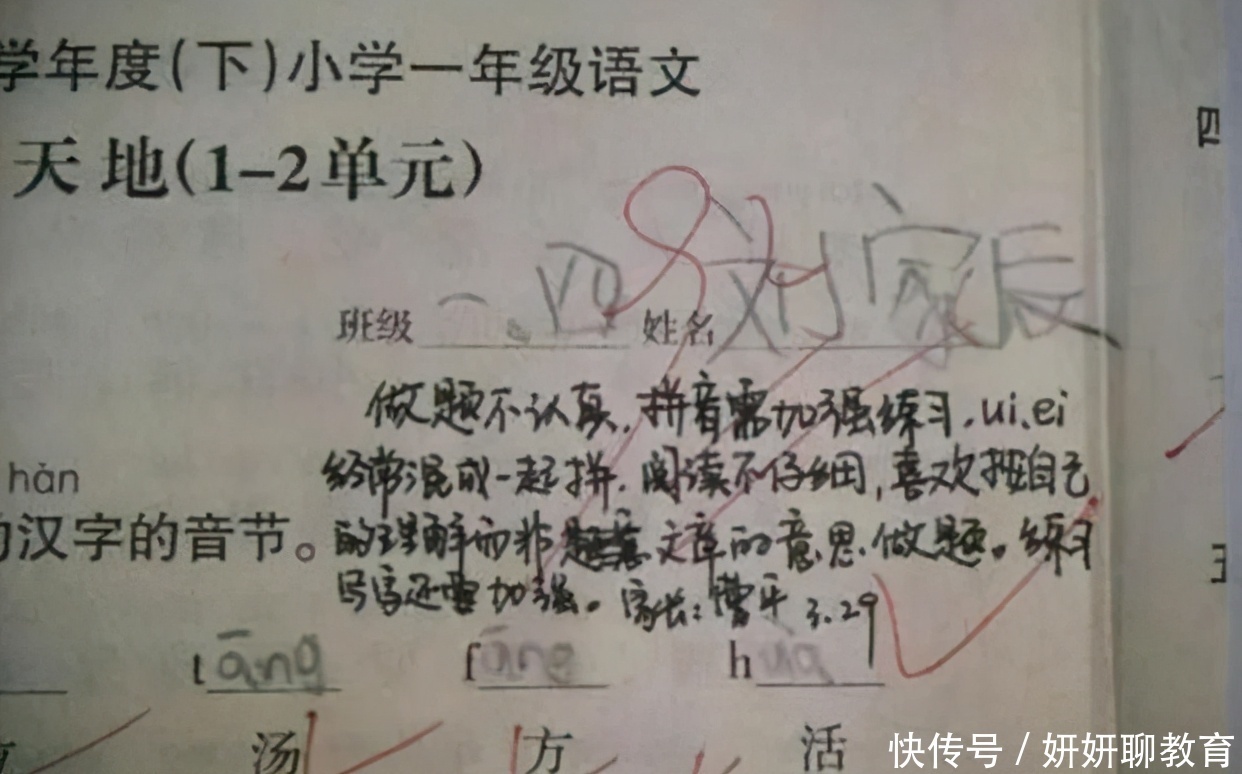 学年度(下)小学一年级语文
天地(1-2单元)
四
班级 一.四 姓名 刘家长
做题不认真,拼音需加强练习,ui、ei
经常混成一起拼,阅读不仔细,喜欢按自己
hàn
汉字的音节。
的理解而非文章的意思做题。练习
写字还需加强。家长:曹平 3.29
tāng fāng h
汤 方 活
快传号 / 妍妍聊教育